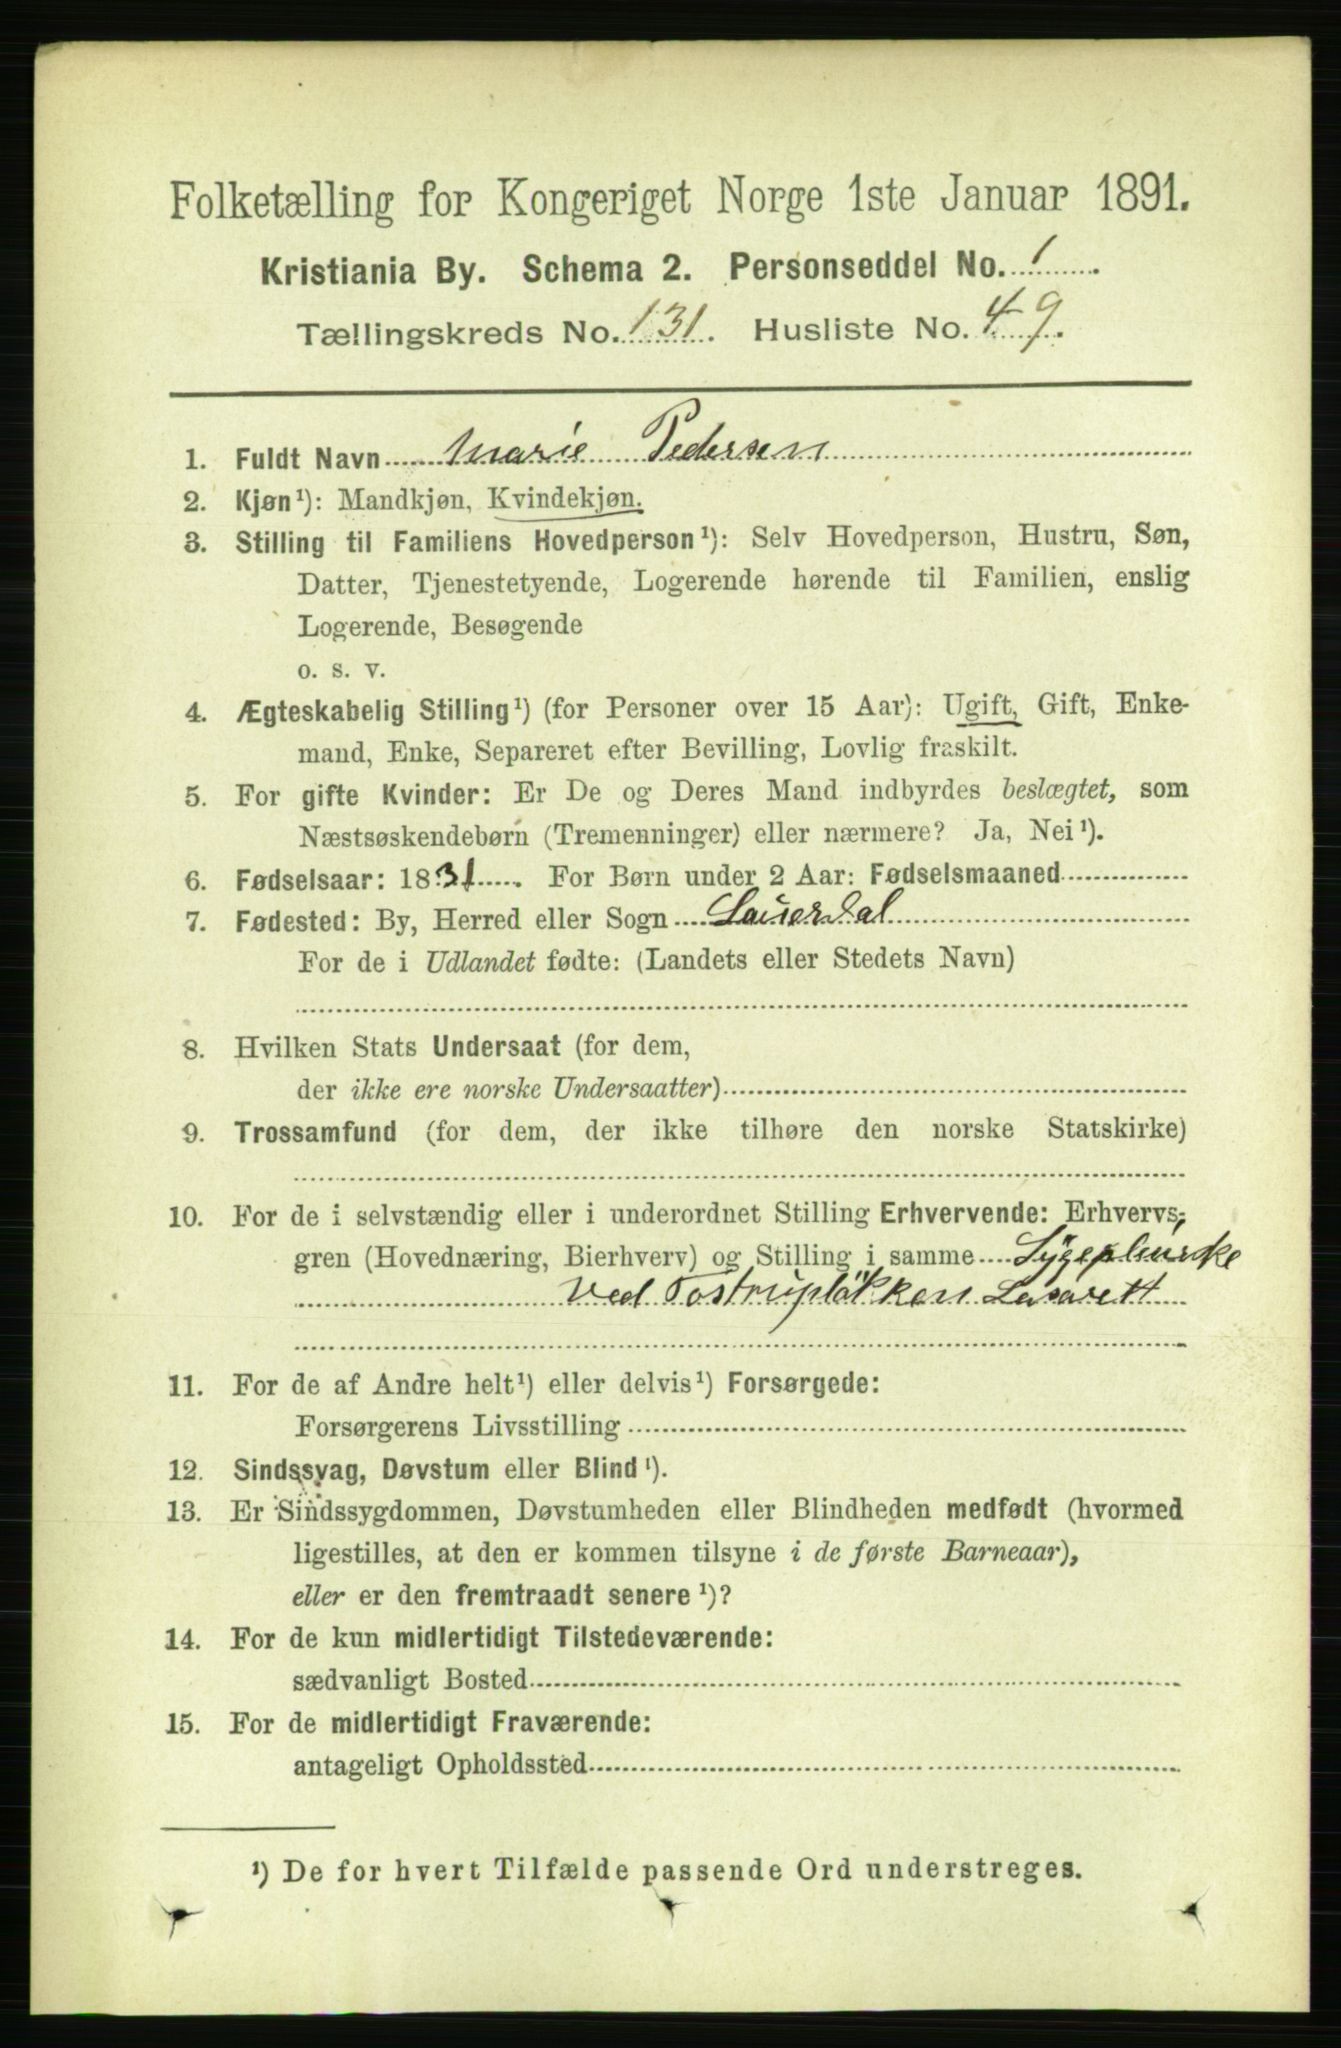 Folketælling for Kongeriget Norge 1ste Januar 1891.
Kristiania By. Schema 2. Personseddel No. 1
Tællingskreds No. 131. Husliste No. 49.
1. Fuldt Navn Marie Pedersen
2. Kjøn¹): Mandkjøn, Kvindekjøn.
3. Stilling til Familiens Hovedperson¹): Selv Hovedperson, Hustru, Søn,
Datter, Tjenestetyende, Logerende hørende til Familien, enslig
Logerende, Besøgende
o. s. v.
4. Ægteskabelig Stilling¹) (for Personer over 15 Aar): Ugift, Gift, Enke-
mand, Enke, Separeret efter Bevilling, Lovlig fraskilt.
5. For gifte Kvinder: Er De og Deres Mand indbyrdes beslægtet, som
Næstsøskendebørn (Tremenninger) eller nærmere? Ja, Nei¹).
6. Fødselsaar: 1831. For Børn under 2 Aar: Fødselsmaaned
7. Fødested: By, Herred eller Sogn
For de i Udlandet fødte: (Landets eller Stedets Navn)
8. Hvilken Stats Undersaat (for dem,
der ikke ere norske Undersaatter)
9. Trossamfund (for dem, der ikke tilhøre den norske Statskirke)
10. For de i selvstændig eller i underordnet Stilling Erhvervende: Erhvervs-
gren (Hovednæring, Bierhverv) og Stilling i samme
ved Tostrupløkken Lasarett
11. For de af Andre helt¹) eller delvis¹) Forsørgede:
Forsørgerens Livsstilling
12. Sindssvag, Døvstum eller Blind¹).
13. Er Sindssygdommen, Døvstumheden eller Blindheden medfødt (hvormed
ligestilles, at den er kommen tilsyne i de første Barneaar),
eller er den fremtraadt senere¹)?
14. For de kun midlertidigt Tilstedeværende:
sædvanligt Bosted
15. For de midlertidigt Fraværende:
antageligt Opholdssted
¹) De for hvert Tilfælde passende Ord understreges.